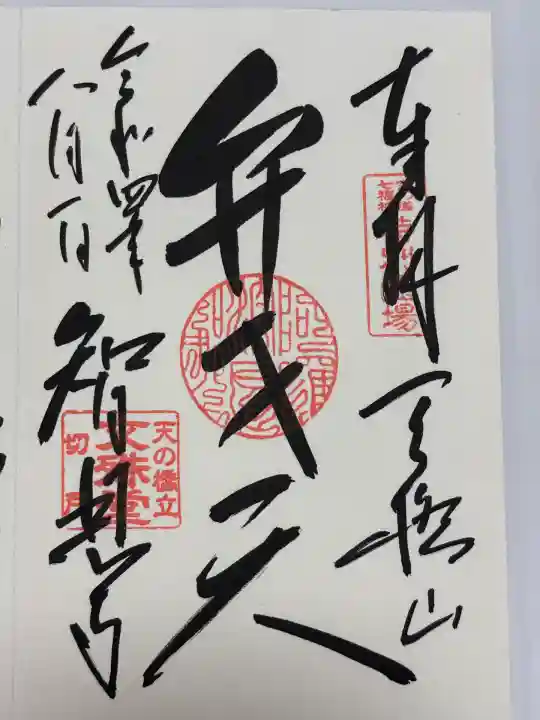 奉拝 天橋山
弁才天
令和四年
八月一日
智恩寺
天の橋立
文殊堂
切戸
七福神
場